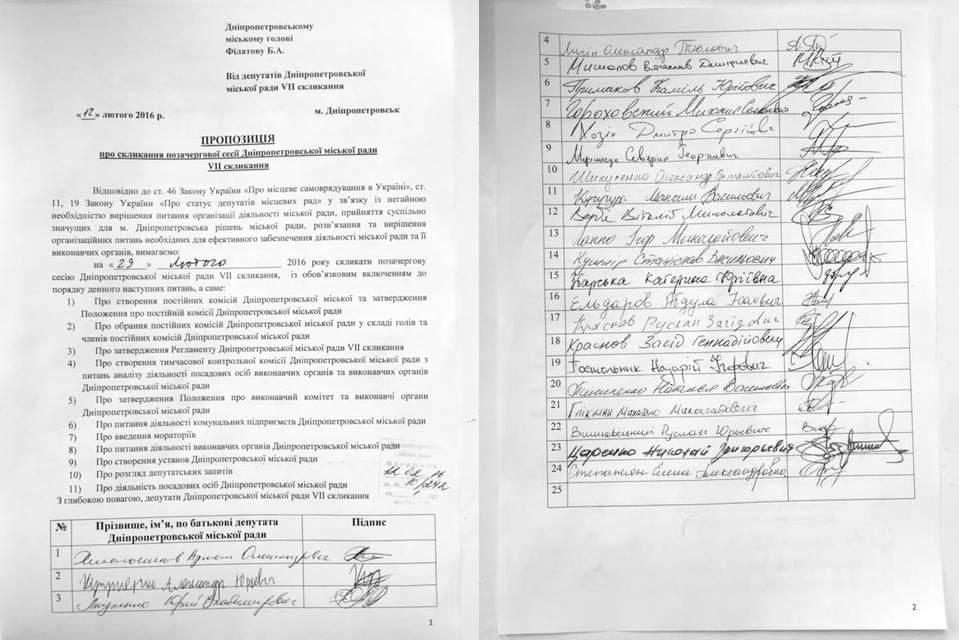 Дніпропетровському
міському голові
Філатову Б.А.
Від депутатів Дніпропетровської
міської ради VII скликання
«12» лютого 2016 р.
м. Дніпропетровськ
ПРОПОЗИЦІЯ
про скликання позачергової сесії Дніпропетровської міської ради
VII скликання
Відповідно до ст. 46 Закону України «Про місцеве самоврядування в Україні», ст.
11, 19 Закону України «Про статус депутатів місцевих рад» у зв'язку із негайною
необхідністю вирішення питання організації діяльності міської ради, прийняття суспільно
значущих для м. Дніпропетровська рішень міської ради, розв'язання та вирішення
організаційних питань необхідних для ефективного забезпечення діяльності міської ради та її
виконавчих органів, вимагаємо:
на «29» лютого 2016 року скликати позачергову
сесію Дніпропетровської міської ради VII скликання, із обов'язковим включенням до
порядку денного наступних питань, а саме:
1) Про створення постійних комісій Дніпропетровської міської та затвердження
Положення про постійній комісії Дніпропетровської міської ради
2) Про обрання постійних комісій Дніпропетровської міської ради у складі голів та
членів постійних комісій Дніпропетровської міської ради
3) Про затвердження Регламенту Дніпропетровської міської ради VII скликання
4) Про створення тимчасової контрольної комісії Дніпропетровської міської ради з
питань аналізу діяльності посадових осіб виконавчих органів та виконавчих органів
Дніпропетровської міської ради
5) Про затвердження Положення про виконавчий комітет та виконавчі органи
Дніпропетровської міської ради
6) Про питання діяльності комунальних підприємств Дніпропетровської міської ради
7) Про введення мораторіїв
8) Про питання діяльності виконавчих органів Дніпропетровської міської ради
9) Про створення установ Дніпропетровської міської ради
10) Про розгляд депутатських запитів
11) Про діяльність посадових осіб Дніпропетровської міської ради
З глибокою повагою, депутати Дніпропетровської міської ради VII скликання
№ Прізвище, ім'я, по батькові депутата Дніпропетровської міської ради Підпис
1 Хмельников Артем Олександрович
2 Александр Юрьевич
3 Юрий Владимирович
1
4 Олександр Павлович
5 Мишалов Вячеслав Дмитриевич
6 Примаков Каміль Юрійович
7 Гороховский Михаил
8 Хозін Дмитро Сергійович
9 Северин Георгиевич
10 Шикуленко Олександр
11 Максим Васильович
12 Верба Віталій Миколайович
13 Лапко Ігор Миколайович
14 Кушнір Станіслав Васильович
15 Жарська Катерина Юріївна
16 Ельдаров Абдула Ісаевич
17 Краснов Руслан Загідович
18 Краснов Загід Геннадійович
19 Постольник Назарій Ігорович
20 Наталія Василівна
21 Глікман Михайло
22 Вишнивецький Руслан Юрьевич
23 Царенко Николай Григорьевич
24 Степанян Єлена Александровна
25
2